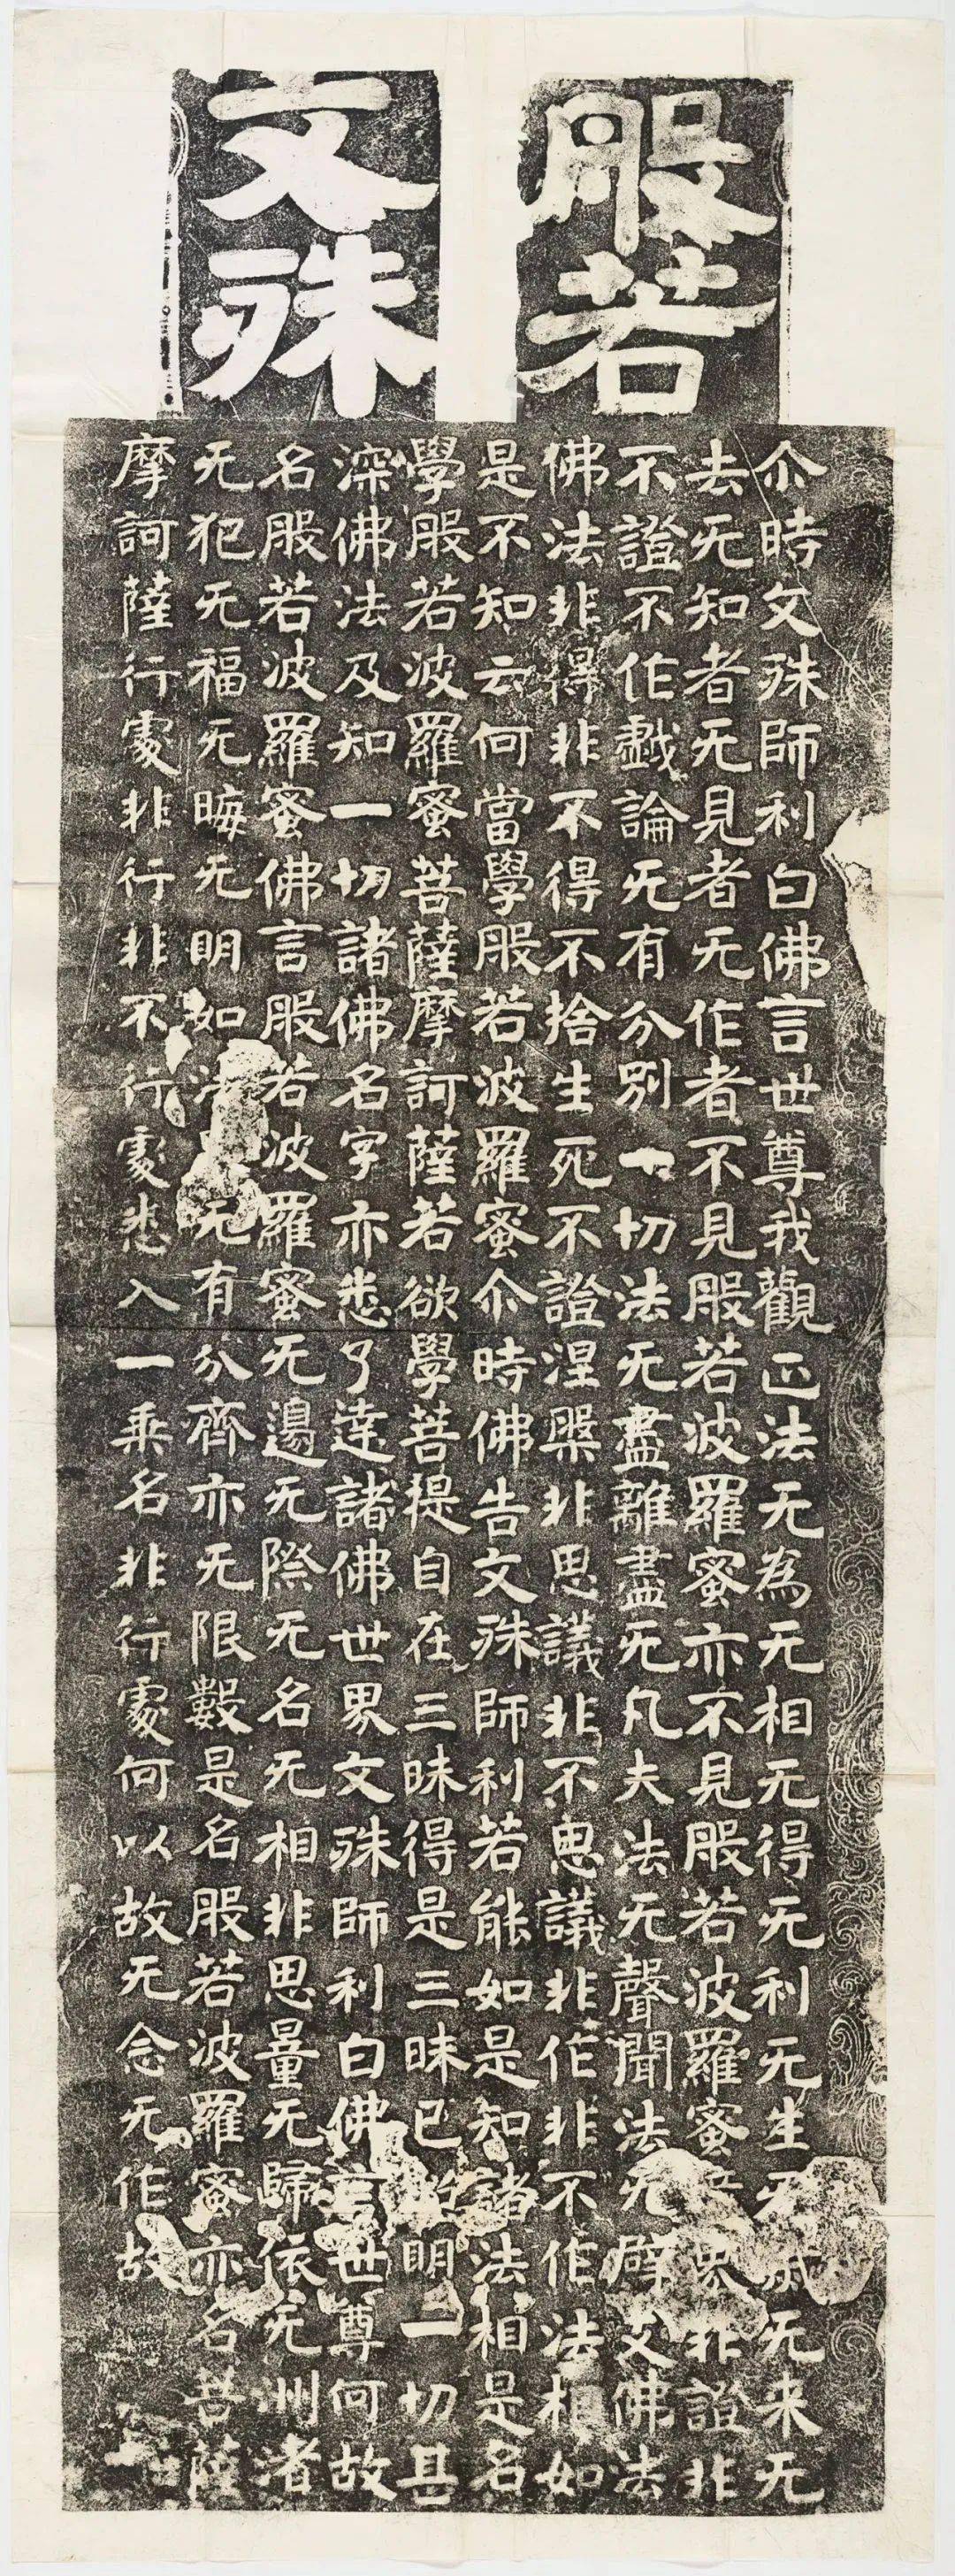 般若
文殊
尒時文殊師利白佛言世尊我觀正法无為无相无得无利无生无来无
去无知者无見者无作者不見般若波羅蜜亦不見般若波羅蜜界非證非
不證不作戲論无有分別一切法无盡離盡无凡夫法无聲聞法无辟支佛法
佛法非得非不得不捨生死不證涅槃非思議非不思議非作非不作法相如
是不知云何當學般若波羅蜜尒時佛告文殊師利若能如是知諸法相是名
學般若波羅蜜菩薩摩訶薩若欲學菩提自在三昧得是三昧已明一切甚
深佛法及知一切諸佛名字亦悉了達諸佛世界文殊師利白佛言世尊何故
名般若波羅蜜佛言般若波羅蜜无邊无際无名无相非思量无歸依无州渚
无犯无福无晦无明如法无有分齊亦无限數是名般若波羅蜜亦名菩薩
摩訶薩行處非行非不行處悉入一乘名非行處何以故无念无作故